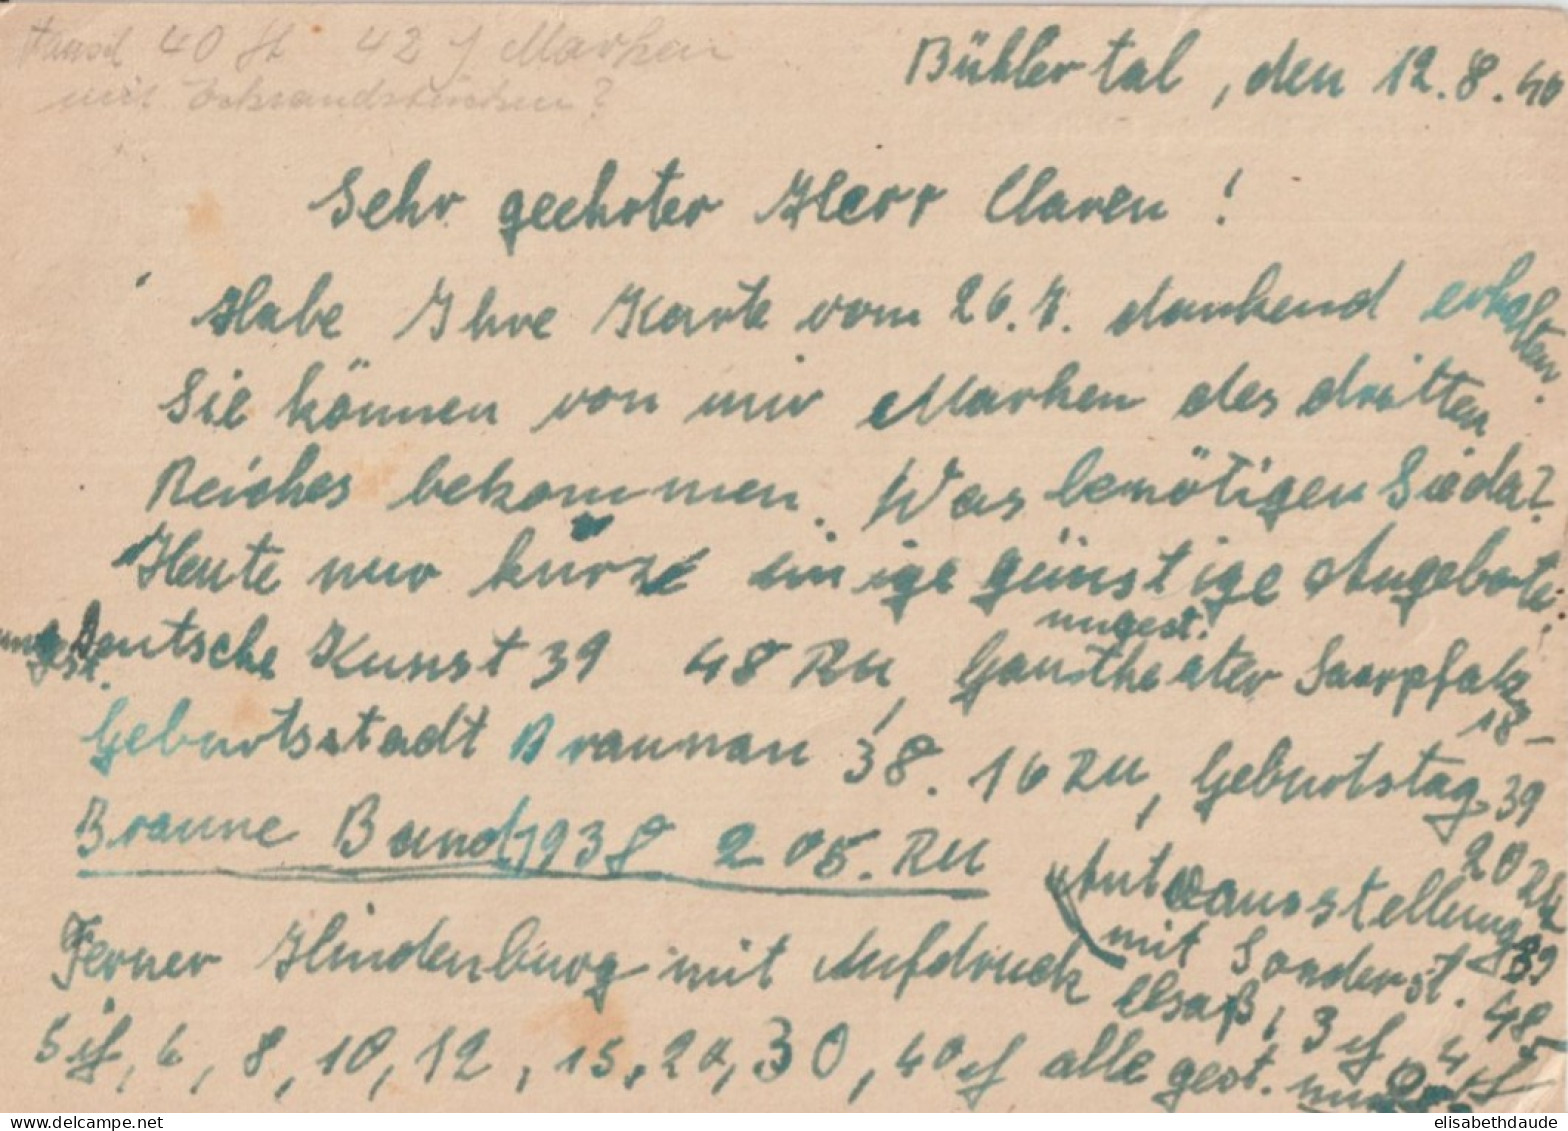 40 St 42 J Marken
mit ?
Bühlertal, den 12.8.40
Sehr geehrter Herr Claren!
Habe Ihre Karte vom 26.7. dankend erhalten.
Sie können von mir Marken des dritten
Reiches bekommen. Was benötigen Sie da?
Heute nur kurz einige günstige Angebote:
ungest. Deutsche Kunst 39 48 RM, ungest. Gautheater Saarpfalz
18-
Geburtsstadt Braunau 38. 16 RM, Geburtstag 39
20 RM
Braune Band 1938 205. RM
Autoausstellung 39
mit Sonderst. 48-
Ferner Hindenburg mit Aufdruck Elsaß, 3 pf 4 pf
5 pf, 6, 8, 10, 12, 15, 20, 30, 40 pf alle gest.
elisabethdaude